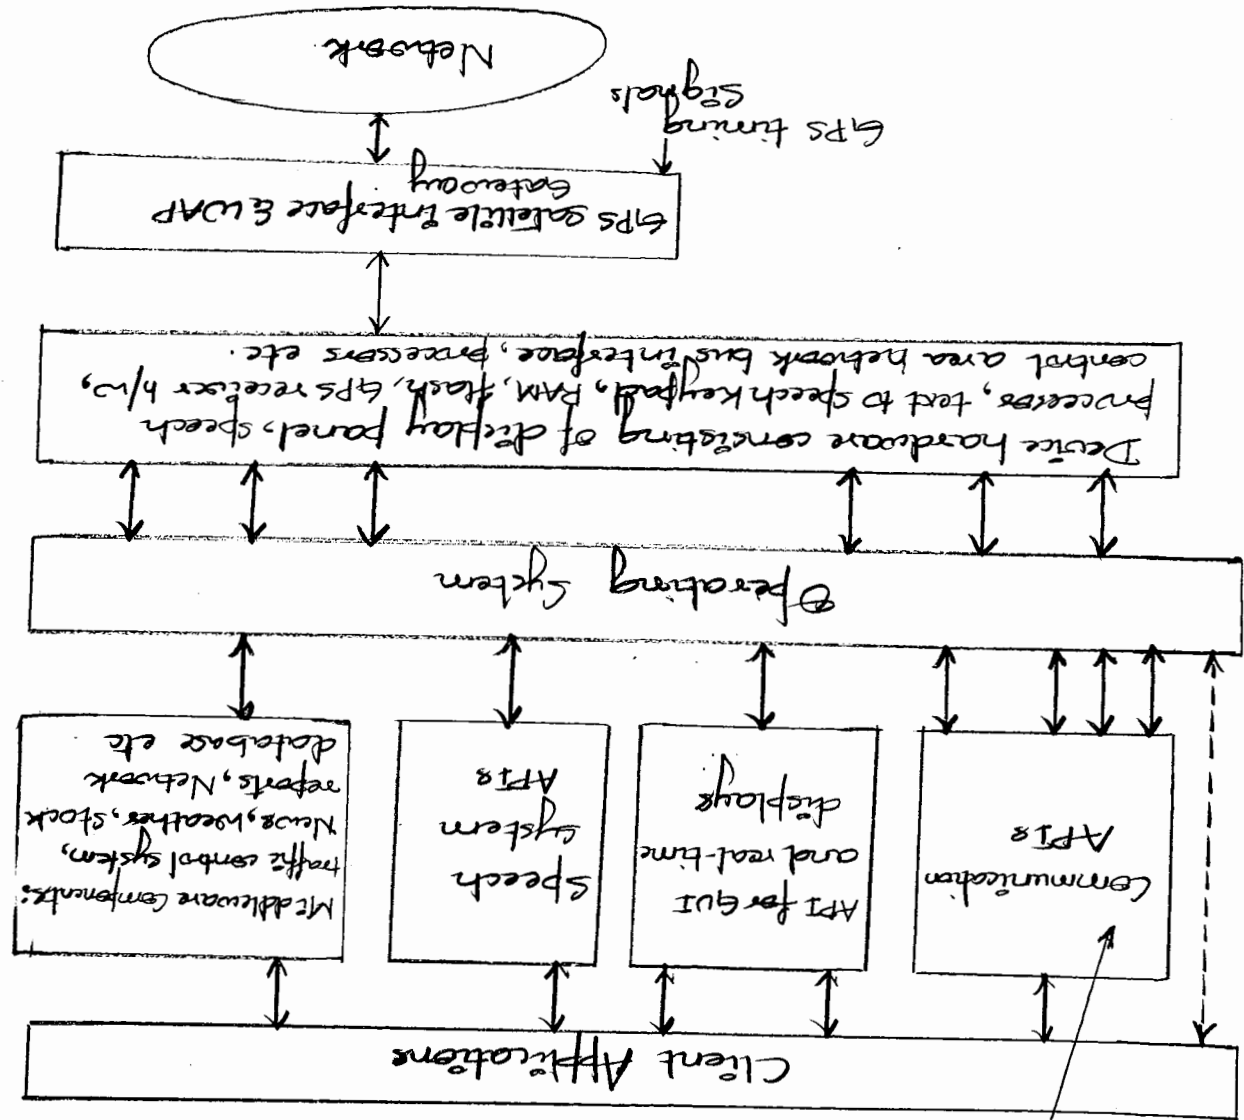 Client Applications
Communication
APIs
API for GUI
and real-time
displays
Speech
System
APIs
Middleware Components:
traffic control system,
News, Weather, Stock
reports, Network
database etc
Operating System
Device hardware consisting of display panel, speech
processor, text to speech keypad, RAM, flash, GPS receiver h/w,
control area network bus interface, processors etc.
GPS satellite interface & WAP
Gateway
GPS timing
signals
Network